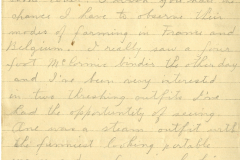 chance I have to observe their
modes of farming in France and
Belgium. I really saw a four
foot McCormic binder the other day
and I've been very interested
in two threshing outfits I've
had the opportunity of seeing.
One was a steam outfit with
the funniest looking portable